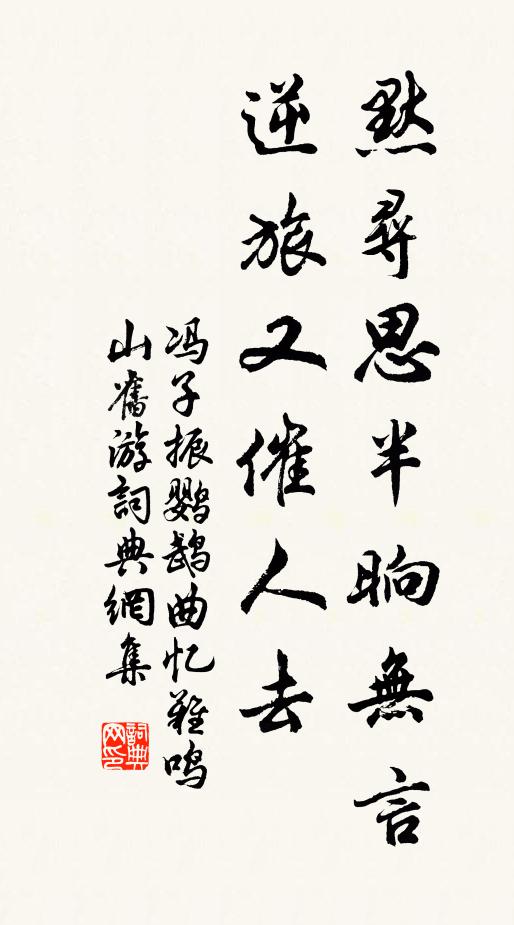 默尋思半晌無言
逆旅又催人去
冯子振鹦鹉曲忆雞鸣
山舊游詞典網集
詞典网印